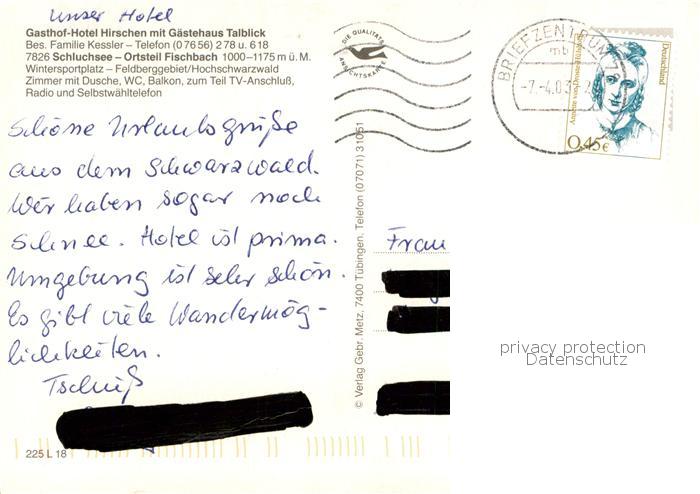 unser Hotel
Gasthof-Hotel Hirschen mit Gästehaus Talblick
Bes. Familie Kessler – Telefon (0 76 56) 2 78 u. 6 18
7826 Schluchsee – Ortsteil Fischbach 1000–1175 m ü. M.
Wintersportplatz – Feldberggebiet/Hochschwarzwald
Zimmer mit Dusche, WC, Balkon, zum Teil TV-Anschluß,
Radio und Selbstwähltelefon
Schöne Urlaubsgrüße
aus dem Schwarzwald.
Wir haben sogar noch
Schnee. Hotel ist prima.
Umgebung ist sehr schön.
Es gibt viele Wandermög-
lichkeiten.
Tschüß
225 L 18
© Verlag Gebr. Metz, 7400 Tübingen, Telefon (07071) 31051
DIE QUALITÄTS
ANSICHTSKARTE
BRIEFZENTRUM
mb
-7.-4.03
Deutschland
Annette von Droste-Hülshoff
0,45€
Frau
privacy protection
Datenschutz